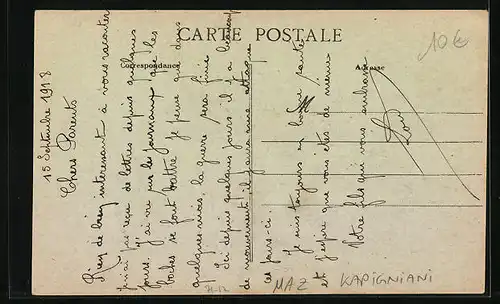 CARTE POSTALE
Correspondance
Adresse
10€
15 Septembre 1918
Chers Parents
Rien de bien interessant à vous raconter
je n'ai pas reçu de lettres depuis quelques
jours. J'ai vu sur les journaux que les
boches se font battre je pense que dans
quelques mois la guerre sera finie
Ici depuis quelques jours il y a beaucoup
de mouvement il y aura une attaque
ces jours-ci.
Je suis toujours en bonne santé
et j'espère que vous êtes de même
Votre fils qui vous embrasse
MAZ KAPIGNIANI